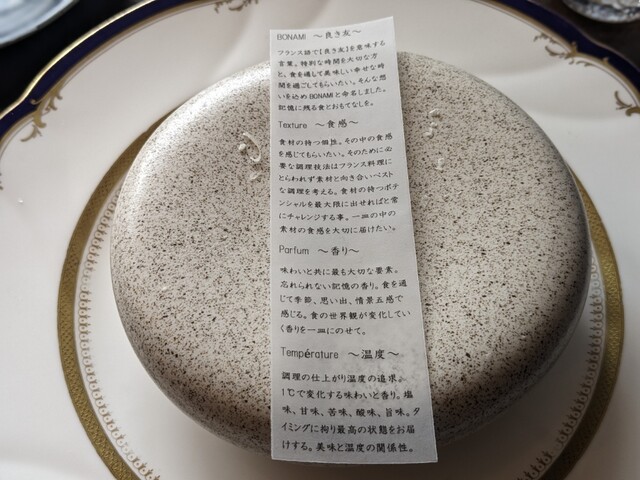 BONAMI ～良き友～
フランス語で【良き友】を意味する
言葉。特別な時間を大切な方
と、食を通して美味しい幸せな時
間を過ごしてもらいたい。そんな想
いを込めBONAMIと命名しました。
記憶に残る食とおもてなしを。
Texture ～食感～
食材の持つ個性。その中の食感
を感じてもらいたい。そのために必
要な調理技法はフランス料理に
とらわれず素材と向き合いベスト
な調理を考える。食材の持つポテ
ンシャルを最大限に出せればと常
にチャレンジする事。一皿の中の
素材の食感を大切に届けたい。
Parfum ～香り～
味わいと共に最も大切な要素。
忘れられない記憶の香り。食を通
じて季節、思い出、情景五感で
感じる。食の世界観が変化してい
く香りを一皿にのせて。
Température ～温度～
調理の仕上がり温度の追求。
1℃で変化する味わいと香り。塩
味、甘味、苦味、酸味、旨味。タ
イミングに拘り最高の状態をお届
けする。美味と温度の関係性。